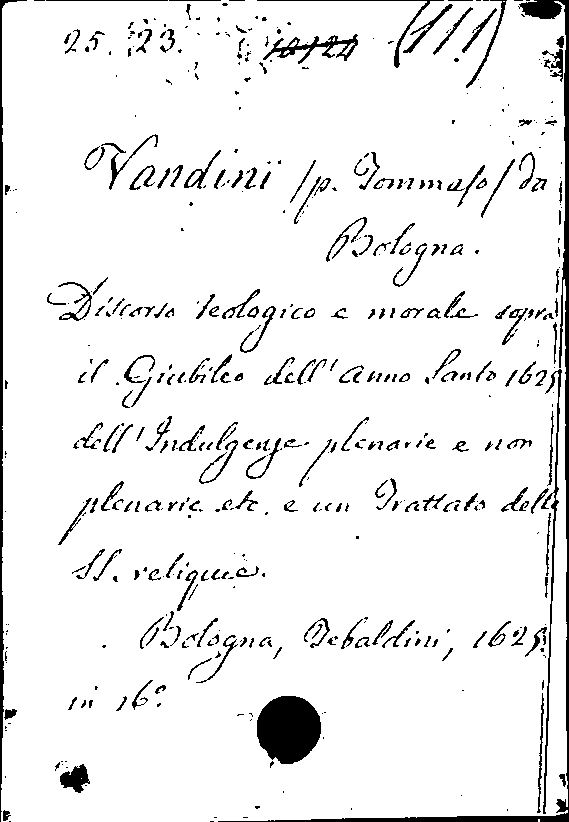 25. 23. 10124 (111)
Vandini /p. Tommaso/ da
Bologna.
Discorso teologico e morale sopra
il Giubileo dell'Anno Santo 1625
dell'Indulgenze plenarie e non
plenarie etc. e un Trattato delle
SS. reliquie.
Bologna, Tebaldini, 1625.
in 16º.